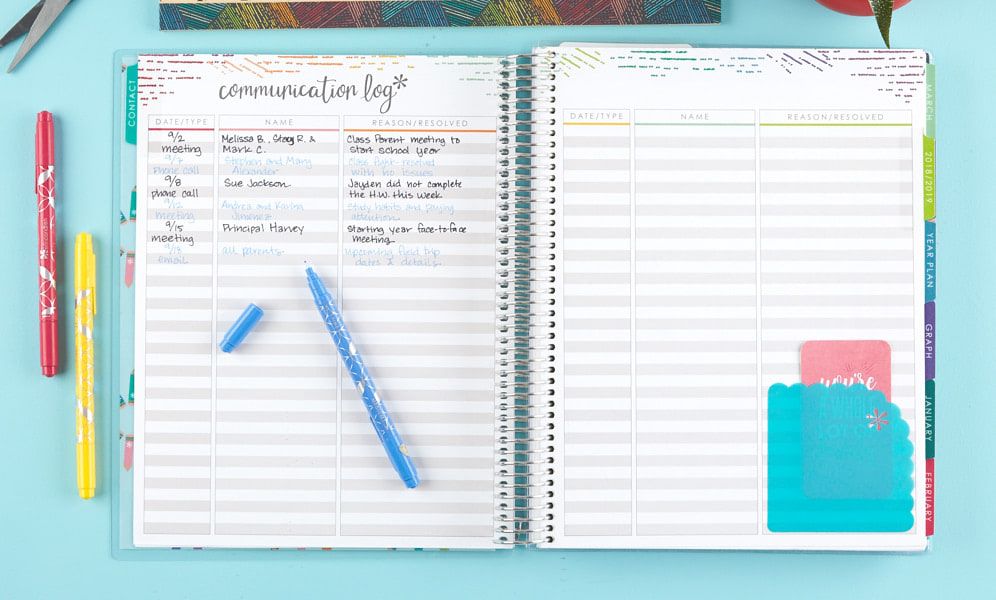 communication log*
CONTACT
DATE/TYPE NAME REASON/RESOLVED
9/2 Melissa B., Stacy R. & Class Parent meeting to
meeting Mark C. start school year
9/7 Stephen and Mary Class fight-resolved
phone call Alexander with no issues
9/8 Sue Jackson Jayden did not complete
phone call the H.W. this week
9/12 Andrea and Karina Study habits and paying
meeting Jimenez attention
9/15 Principal Harvey starting year face-to-face
meeting meeting
all parents upcoming field trip
email dates & details
DATE/TYPE NAME REASON/RESOLVED
MARCH
2018/2019
YEAR PLAN
GRAPH
JANUARY
FEBRUARY
you're